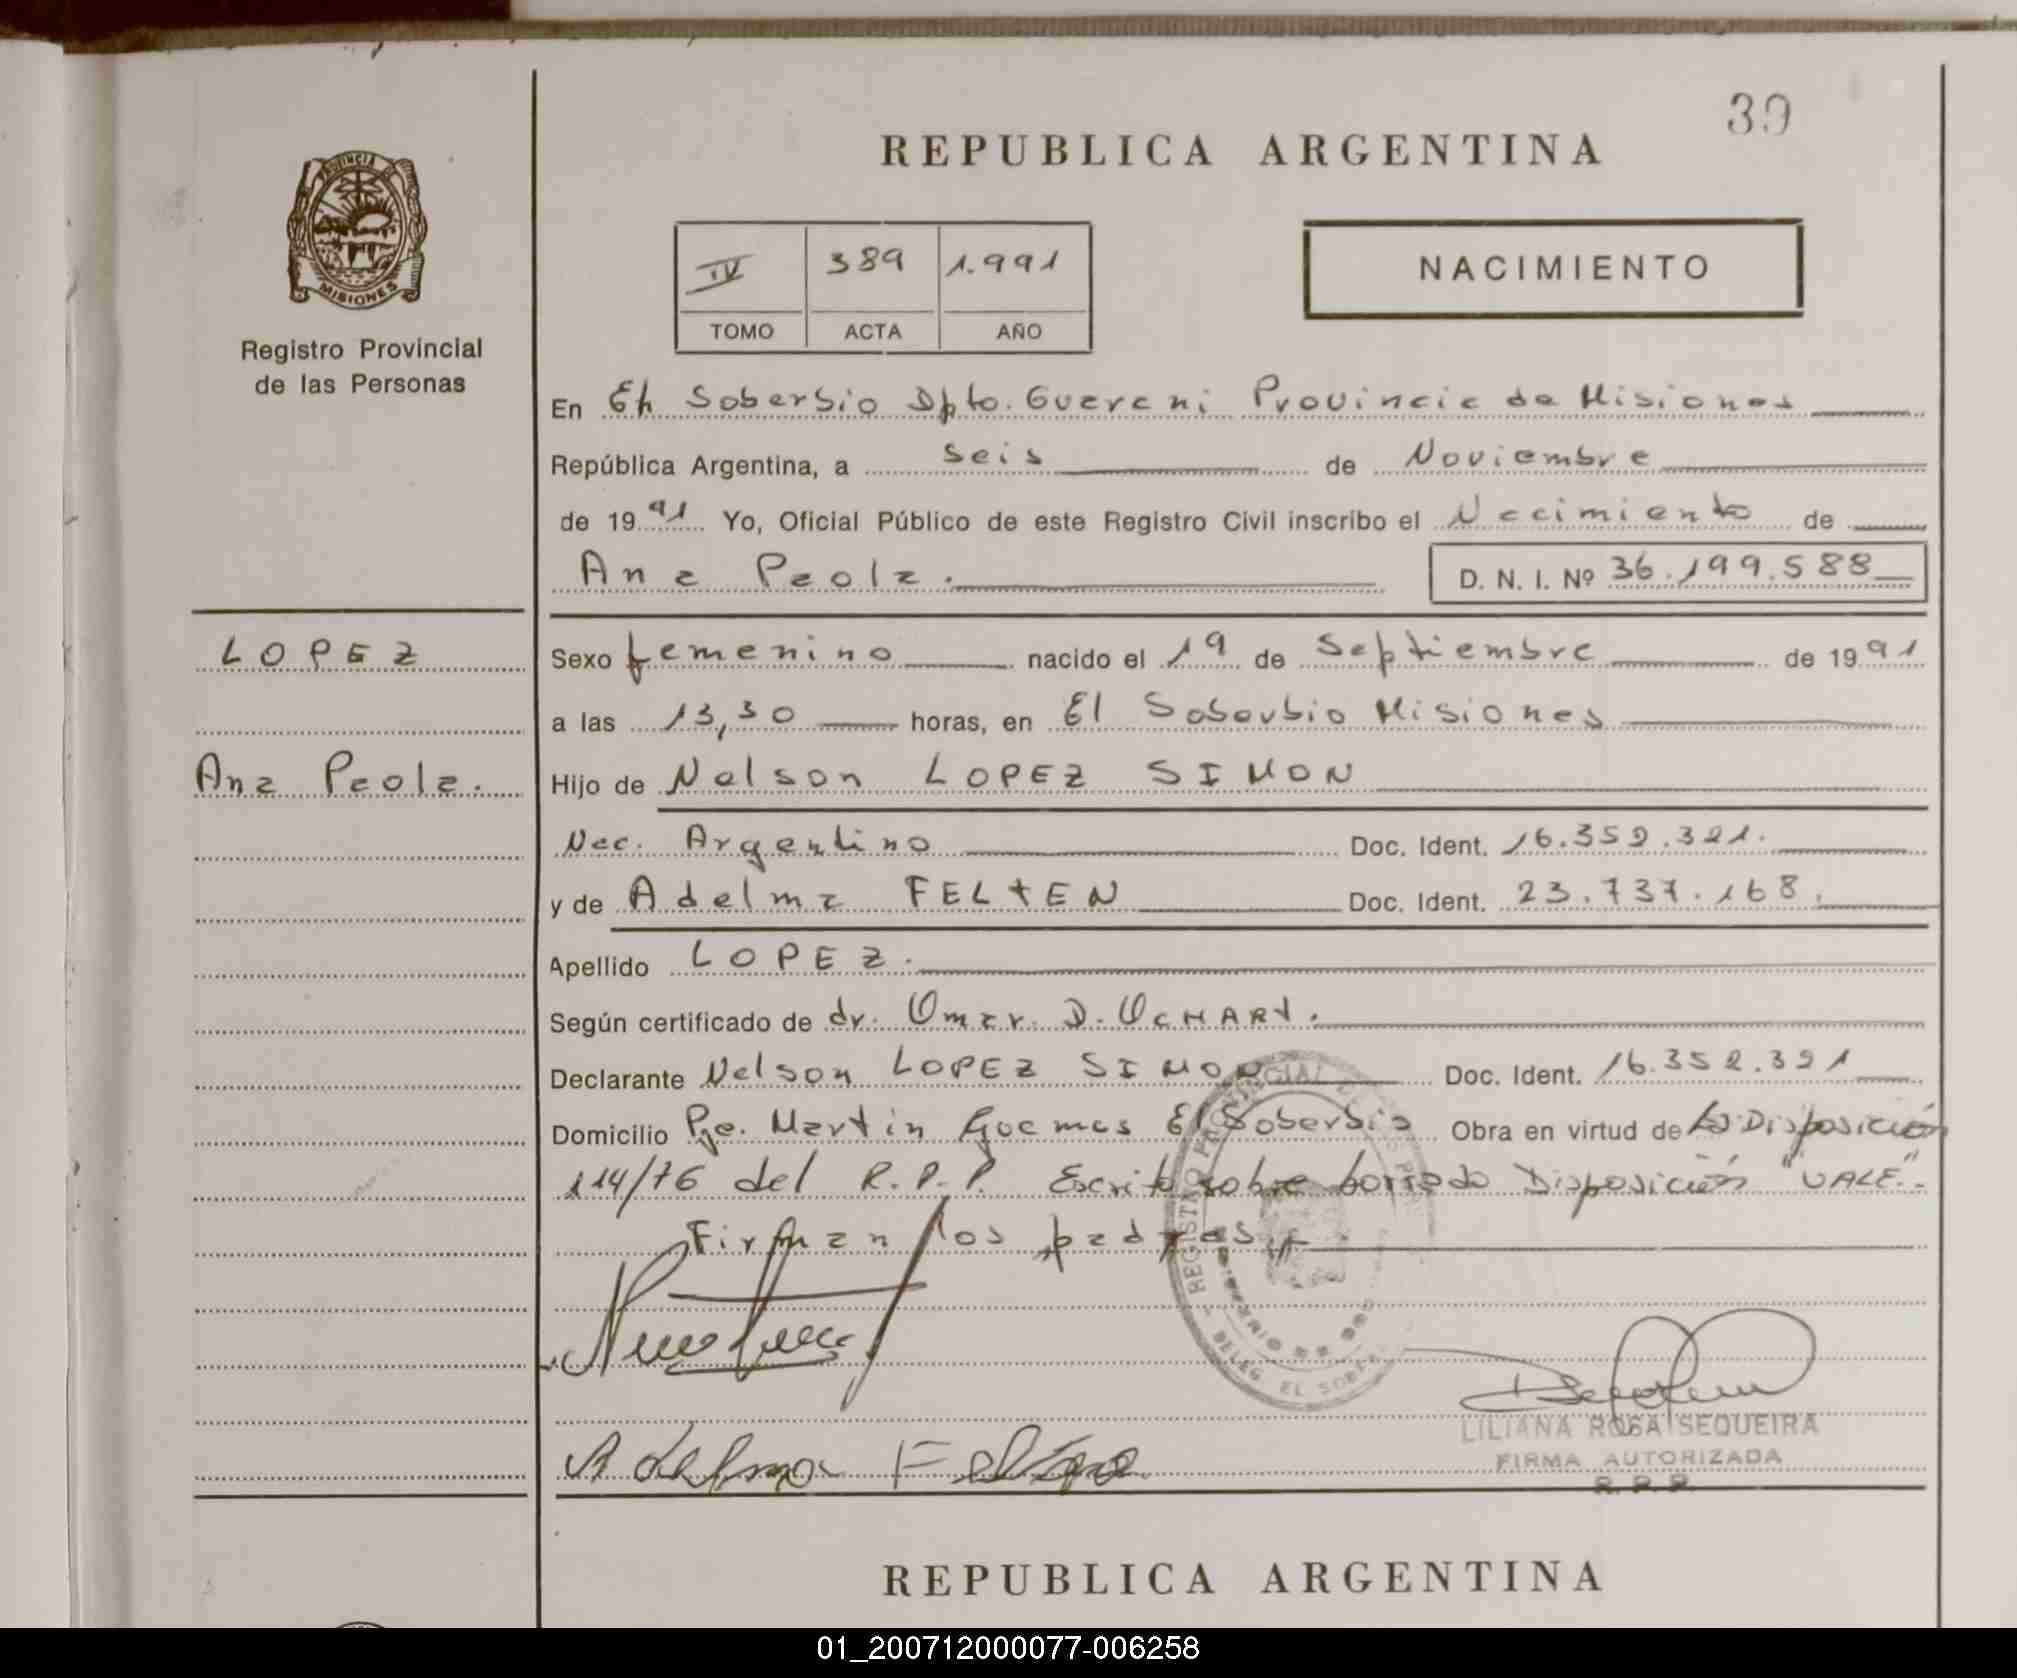 39
REPUBLICA ARGENTINA
PROVINCIA
MISIONES
IV 389 1.991
TOMO ACTA AÑO
NACIMIENTO
Registro Provincial
de las Personas
En El Soberbio Dpto. Guarani Provincia de Misiones
República Argentina, a seis de Noviembre
de 1991 Yo, Oficial Público de este Registro Civil inscribo el Nacimiento de
Ana Paola. D. N. I. Nº 36.199.588
LOPEZ
Ana Paola.
Sexo femenino nacido el 19 de Septiembre de 1991
a las 13,30 horas, en El Soberbio Misiones
Hijo de Nelson LOPEZ SIMON
Nac. Argentino Doc. Ident. 16.352.321.
y de Adelma FELTEN Doc. Ident. 23.737.168.
Apellido LOPEZ.
Según certificado de dr. Omar. D. OCHART.
Declarante Nelson LOPEZ SIMON Doc. Ident. 16.352.321
Domicilio Pje. Martin Guemes El Soberbio Obra en virtud de La Disposición
114/76 del R.P.P. Escrito sobre borrado Disposición "VALE".-
Firman los padres
REGISTRO PROVINCIAL DE
DELEG. EL SOBER
Adelma Felten
LILIANA ROSA SEQUEIRA
FIRMA AUTORIZADA
R. P. P.
REPUBLICA ARGENTINA
01_200712000077-006258